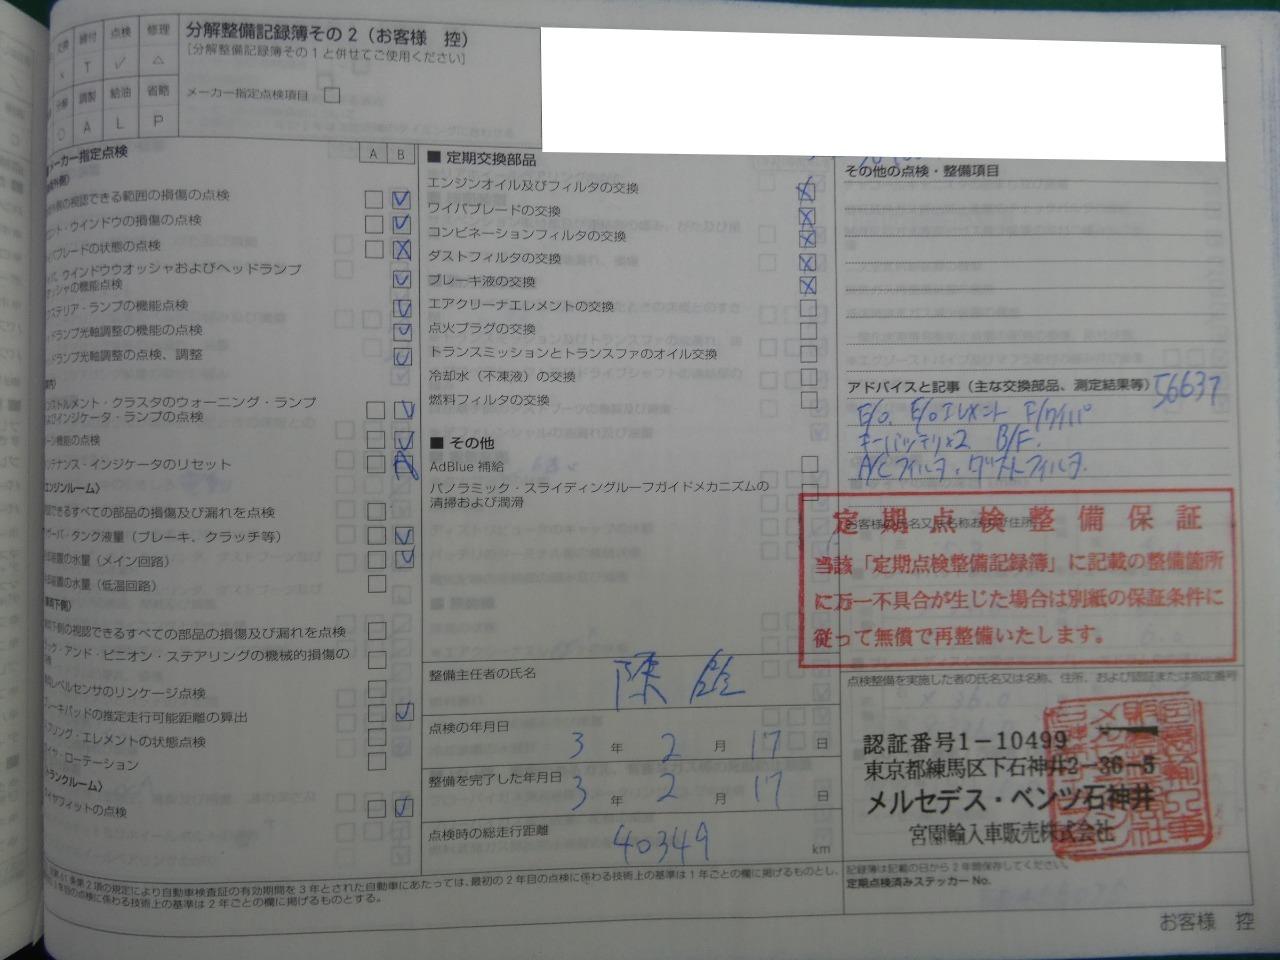 締付
点検
修理
T
✓
△
分解
調製
給油
省略
A
L
P
分解整備記録簿その2（お客様 控）
[分解整備記録簿その1と併せてご使用ください]
メーカー指定点検項目 □
メーカー指定点検
A B
の視認できる範囲の損傷の点検
ント・ウインドウの損傷の点検
イパブレードの状態の点検
ウインドウウオッシャおよびヘッドランプ
ッシャの機能点検
ステリア・ランプの機能点検
ドランプ光軸調整の機能の点検
ドランプ光軸調整の点検、調整
ンストルメント・クラスタのウォーニング・ランプ
よびインジケータ・ランプの点検
ーン機能の点検
ンテナンス・インジケータのリセット
エンジンルーム〉
認できるすべての部品の損傷及び漏れを点検
ザーバ・タンク液量（ブレーキ、クラッチ等）
却装置の水量（メイン回路）
却装置の水量（低温回路）
下側の視認できるすべての部品の損傷及び漏れを点検
ック・アンド・ピニオン・ステアリングの機械的損傷の
レベルセンサのリンケージ点検
レーキパッドの推定走行可能距離の算出
プリング・エレメントの状態点検
イヤ・ローテーション
トランクルーム〉
イヤフィットの点検
■ 定期交換部品
エンジンオイル及びフィルタの交換
ワイパブレードの交換
コンビネーションフィルタの交換
ダストフィルタの交換
ブレーキ液の交換
エアクリーナエレメントの交換
点火プラグの交換
トランスミッションとトランスファのオイル交換
冷却水（不凍液）の交換
燃料フィルタの交換
■ その他
AdBlue 補給
パノラミック・スライディングルーフガイドメカニズムの
清掃および潤滑
整備主任者の氏名
陳
点検の年月日
3 年 2 月 17 日
整備を完了した年月日
3 年 2 月 17 日
点検時の総走行距離
40349 km
その他の点検・整備項目
アドバイスと記事（主な交換部品、測定結果等） 56637
E/O. E/Oエレメント F/ワイパ
キーバッテリ×2 B/F.
A/Cフィルタ. ダストフィルタ.
お客様の氏名又は名称および住所
定期点検整備保証
当該「定期点検整備記録簿」に記載の整備箇所
に万一不具合が生じた場合は別紙の保証条件に
従って無償で再整備いたします。
点検整備を実施した者の氏名又は名称、住所、および認証または指定番号
認証番号1-10499
東京都練馬区下石神井2-36-5
メルセデス・ベンツ石神井
宮園輸入車販売株式会社
記録簿は記載の日から2年間保存してください。
定期点検済みステッカー No.
条第2項の規定により自動車検査証の有効期間を3年とされた自動車にあたっては、最初の2年目の点検に係わる技術上の基準は1年ごとの欄に掲げるものとし、
年目の点検に係わる技術上の基準は2年ごとの欄に掲げるものとする。
お客様 控